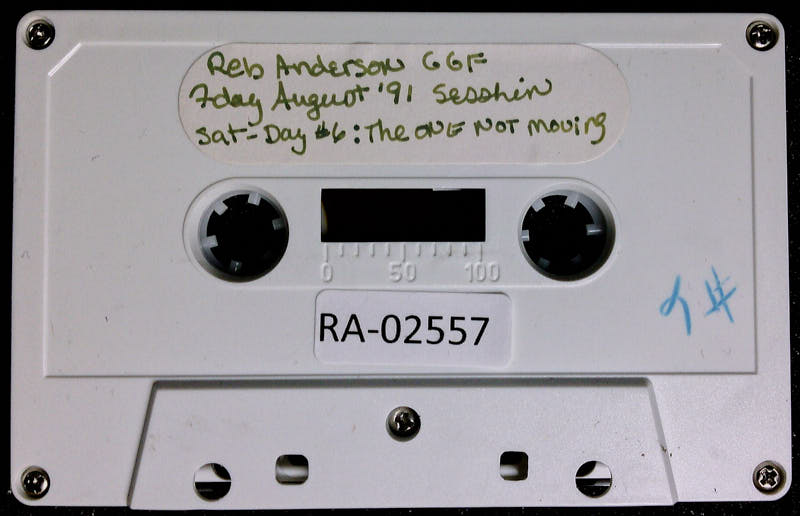 Reb Anderson GGF
7day August '91 Sesshin
Sat-Day #6: The ONE NOT moving
0 50 100
RA-02557